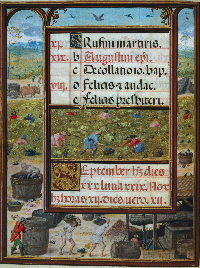 xi. A Rufini martiris.
xix. b Augustini epi.
c Decollatio io. bap.
viii. d Felicis et audac.
e Felicis presbiteri.
September hz dies
xxx luna xxix. Nox
hz horas xii. dies vero. xii.